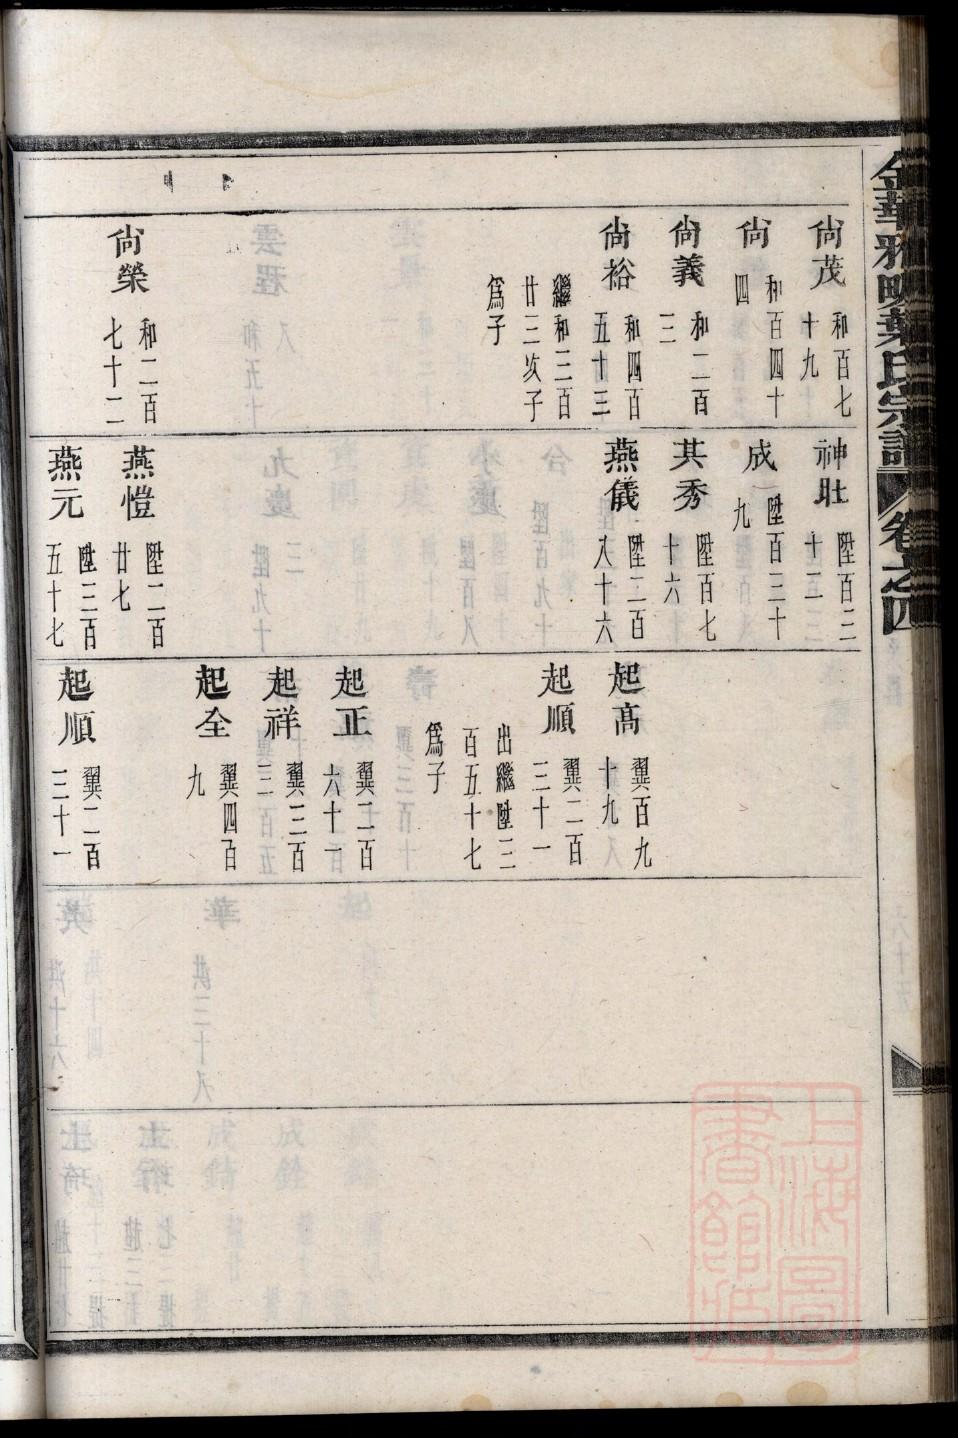 金華雅畈葉氏宗譜 卷之四
尙茂 和百七十九
尙 和百四十四
尙義 和二百三
尙裕 和四百五十三
繼和三百廿三次子為子
尙榮 和二百七十二
神壯 陞百三十三
成 陞百三十九
其秀 陞百七十六
燕儀 陞二百八十六
燕愷 陞二百廿七
燕元 陞三百五十七
起高 翼百九十九
起順 翼二百三十一
出繼陞三百五十七為子
起正 翼二百六十一
起祥 翼三百三
起全 翼四百九
起順 翼二百三十一
上海圖書館藏